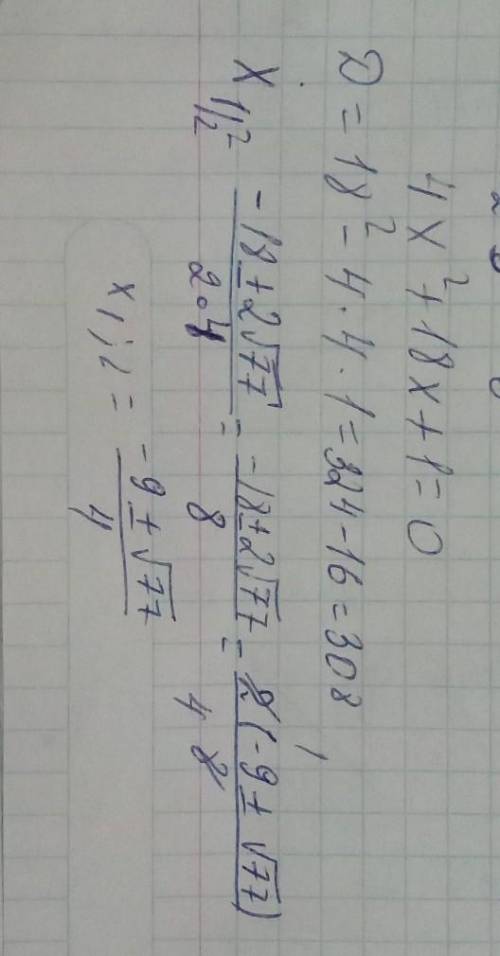 4x² + 18x + 1 = 0
D = 18² - 4 · 4 · 1 = 324 - 16 = 308
x₁,₂ = (-18 ± 2√77)/(2·4) = (-18 ± 2√77)/8 = 2(-9 ± √77)/8 1 4
x₁;₂ = (-9 ± √77)/4